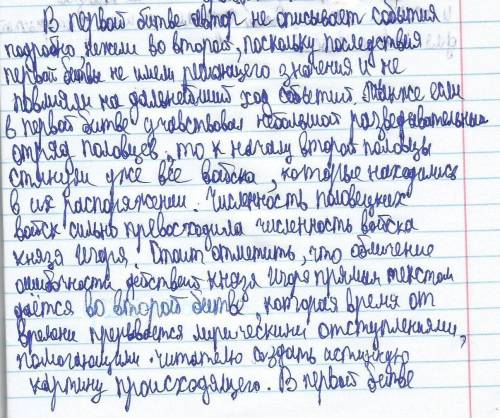 В первой битве автор не описывает события
подробно, нежели во второй, поскольку последствия
первой битвы не имели решающего значения и не
повлияли на дальнейший ход событий. Также если
в первой битве учавствовал небольшой разведывательный
отряд половцев, то к началу второй половцы
стянули уже все войска, которые находились
в их распоряжении. Численность половецких
войск сильно превосходила численность войска
князя Игоря. Стоит отметить, что обличение
ошибочности действий князя Игоря прямым текстом
даётся во второй битве, которая время от
времени прерывается лирическими отступлениями,
помогающими читателю создать истинную
картину происходящего. В первой битве